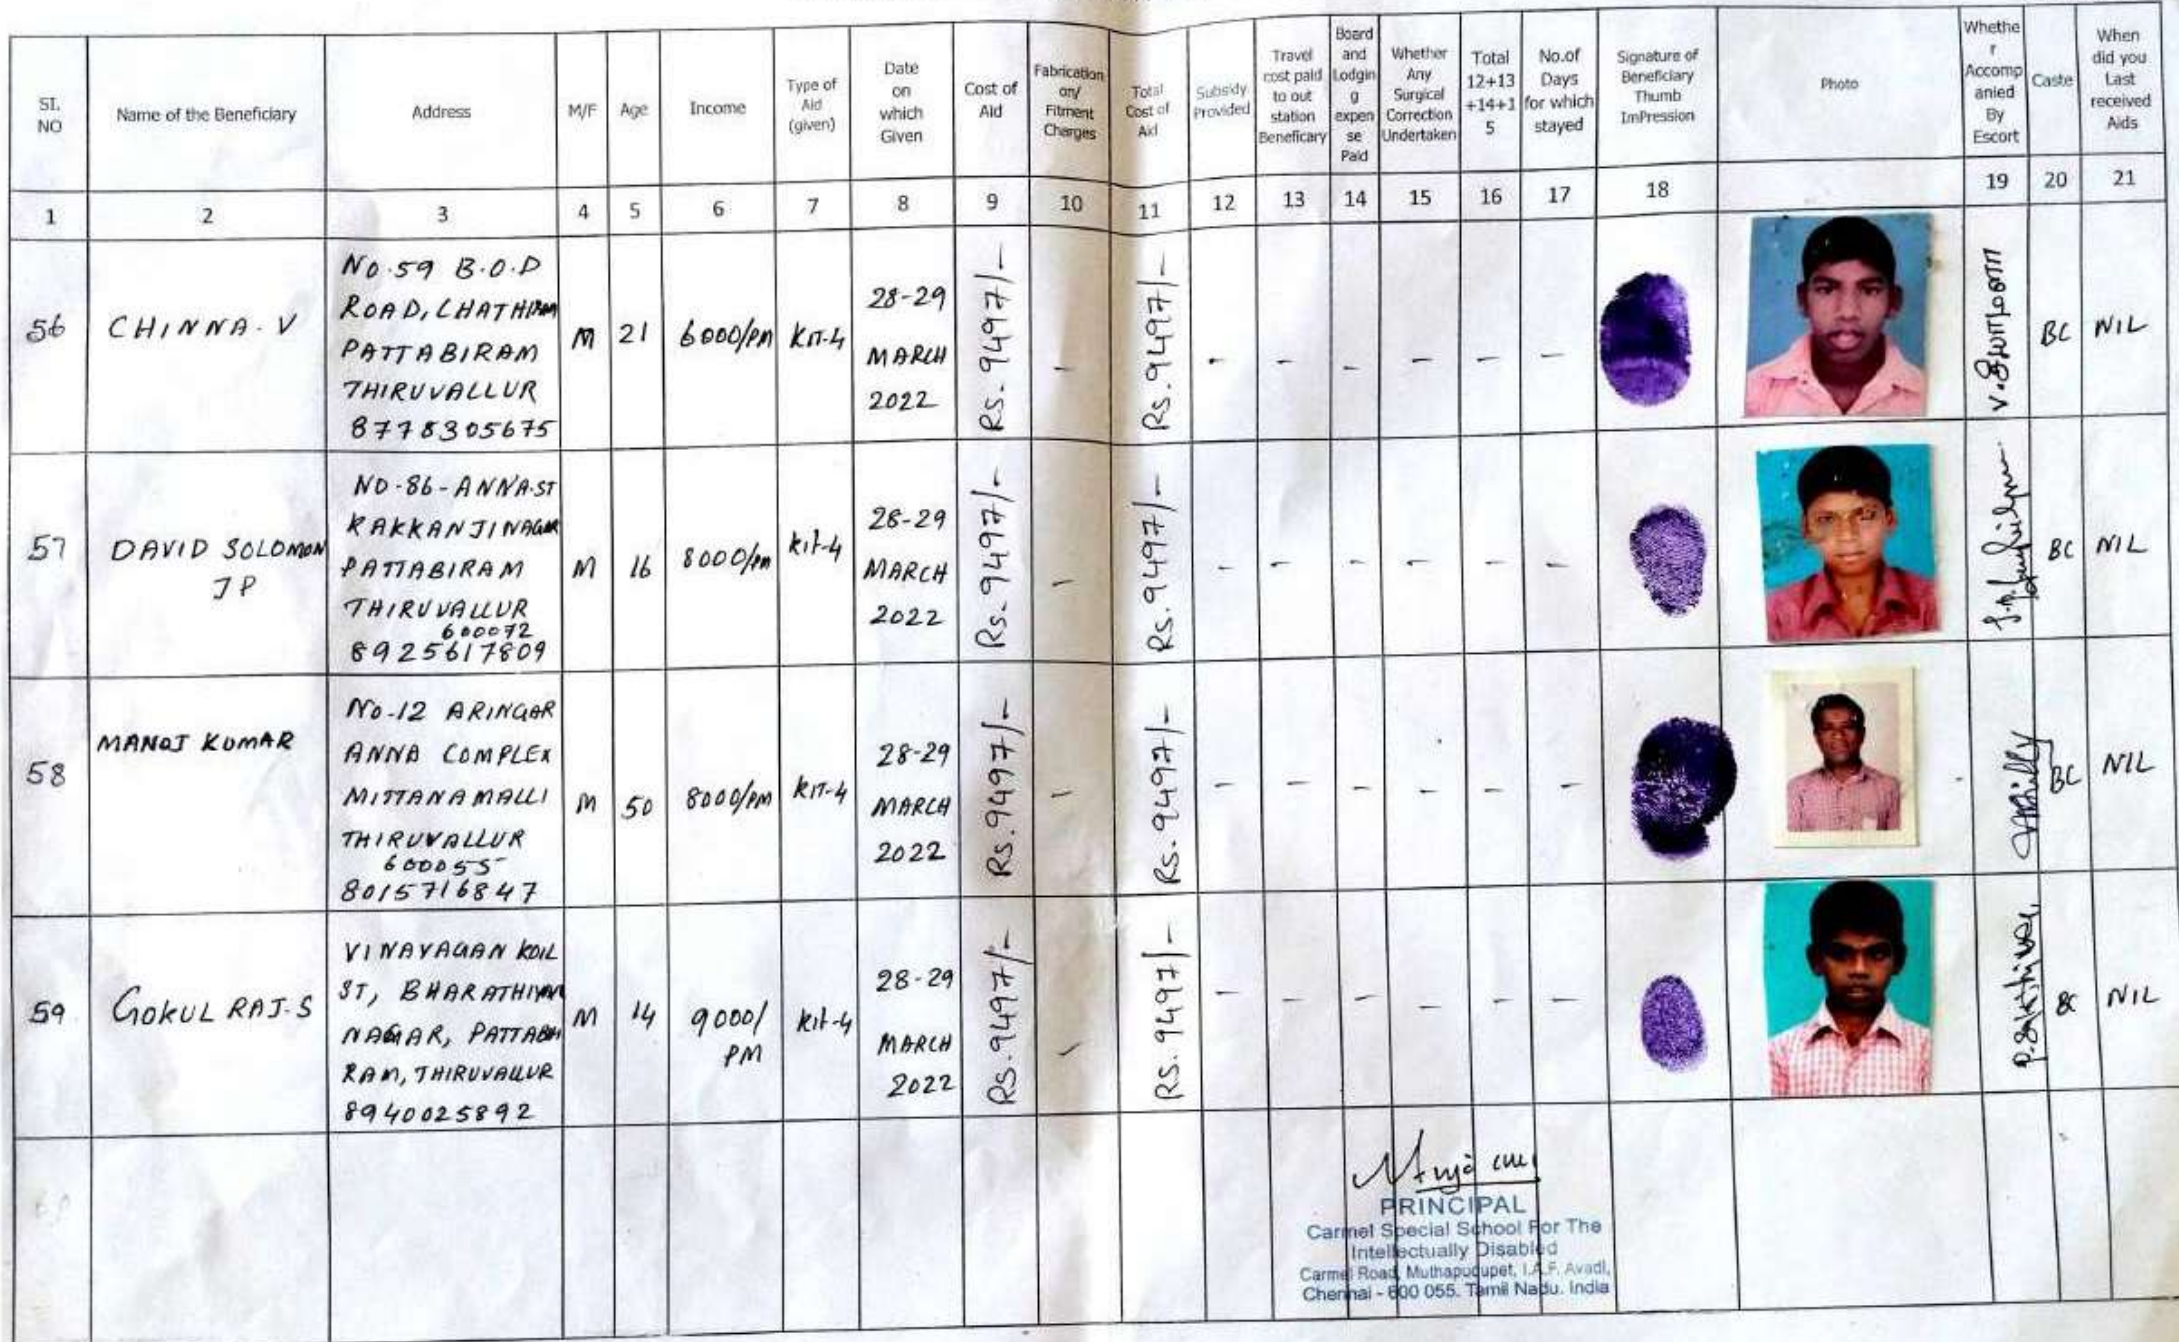 SI. NO
Name of the Beneficiary
Address
M/F
Age
Income
Type of
Aid
(given)
Date
on
which
Given
Cost of
Aid
Fabrication
on/
Fitment
Charges
Total
Cost of
Aid
Subsidy
Provided
Travel
cost paid
to out
station
Beneficary
Board
and
Lodgin
g
expen
se
Paid
Whether
Any
Surgical
Correction
Undertaken
Total
12+13
+14+1
5
No.of
Days
for which
stayed
Signature of
Beneficiary
Thumb
ImPression
Photo
Whethe
r
Accomp
anied
By
Escort
Caste
When
did you
Last
received
Aids
1 2 3 4 5 6 7 8 9 10 11 12 13 14 15 16 17 18 19 20 21
56
CHINNA. V
No.59 B.O.D
ROAD, CHATHIRAM
PATTABIRAM
THIRUVALLUR
8778305675
M
21
6000/PM
KIT-4
28-29
MARCH
2022
Rs. 9497/-
-
Rs. 9497/-
- - - - - -
BC
NIL
57
DAVID SOLOMON
J P
NO-86-ANNA.ST
KAKKANJINAGAR
PATTABIRAM
THIRUVALLUR
600072
8925617809
M
16
8000/PM
Kit-4
28-29
MARCH
2022
Rs. 9497/-
-
Rs. 9497/-
- - - - - -
BC
NIL
58
MANOJ KUMAR
No-12 ARINGAR
ANNA COMPLEX
MITTANAMALLI
THIRUVALLUR
600055
8015716847
M
50
8000/PM
KIT-4
28-29
MARCH
2022
Rs. 9497/-
-
Rs. 9497/-
- - - - - -
BC
NIL
59
GOKUL RAJ.S
VINAYAGAN KOIL
ST, BHARATHIYAR
NAGAR, PATTABI
RAM, THIRUVALLUR
8940025892
M
14
9000/
PM
Kit-4
28-29
MARCH
2022
Rs. 9497/-
-
Rs. 9497/-
- - - - - -
BC
NIL
PRINCIPAL
Carmel Special School For The
Intellectually Disabled
Carmel Road, Muthapudupet, I.A.F. Avadi,
Chennai - 600 055. Tamil Nadu. India